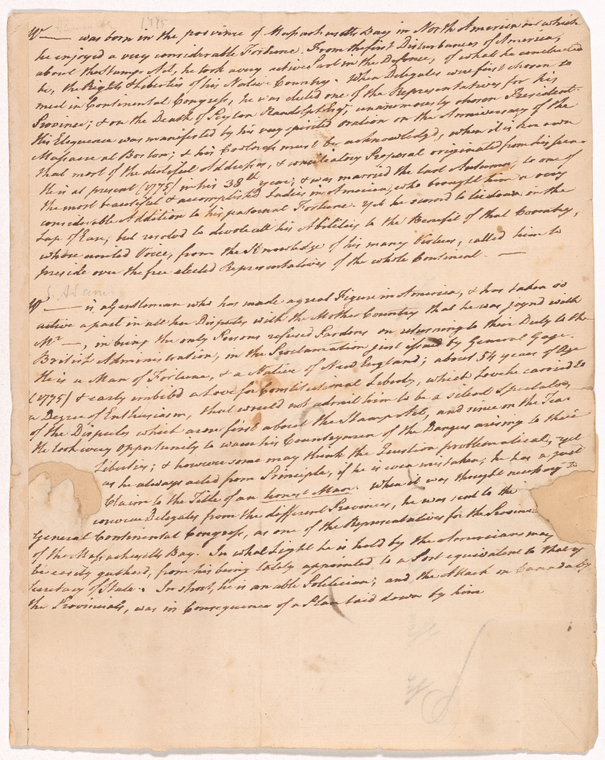 1775
Mr — was born in the porvince of Massachusetts Bay in North America in which
he enjoyed a very considerable Fortune. From the first Disturbances of America,
about the Stamp Act, he took a very active Part in the Defence, of what he conceived to
be, the Rights & Liberties of his Native Country. When Delegates were first chosen to
meet in Continental Congress, he was elected one of the Representatives for his
Province; & on the Death of Peyton Randolph Esqr, unanimously chosen President.
His Eloquence was manifested by his very spirited oration on the Anniversary of the
Massacre at Boston; & his Coolness must be acknowledg'd, when it is known
that most of the dutiful Addresses, & conciliatory Proposal originated from his pen.
He is at present (1775) in his 38th year; & was married the last Autumn, to one of
the most beautiful & accomplished Ladies in America, who brought him a very
considerable Addition to his paternal Fortune. Yet he scorn'd to lie down in the
Lap of Ease, but resolv'd to devote all his Abilities to the Benefit of that Country,
whose united Voice, from the Knowledge of his many Virtues, called him to
preside over the free elected Representatives of the whole Continent. —
S. Adams
Mr — is a Gentleman who has made a great Figure in America, & has taken so
active a part in all her Disputes with the Mother Country that he was joyn'd with
Mr —, in being the only Persons refused Pardons on returning to their Duty to the
British Administration, in the Proclamation first issued by General Gage.
He is a Man of Fortune, & a Native of New England; about 54 years of Age
(1775) & early imbibed a Love for Constitutional Liberty, which Love he carried to
a Degree of Enthusiasm, that would not admit him to be a silent Spectator,
of the Disputes which arose first about the Stamp Act, and since on the Tea.
He took every Opportunity to warn his Countrymen of the Dangers arising to their
Liberties; & however some may think the Question problematical, yet
as he always acted from Principle, if he is even mistaken, he has a just
Claim to the Title of an honest Man. When it was thought necessary to
convene Delegates from the different Provinces, he was sent to the
General Continental Congress, as one of the Representatives for the Province
of the Massachusetts Bay. In what Light he is held by the Americans may
be easily gather'd, from his being lately appointed to a Post equivalent to that of
Secretary of State. In short, he is an able Politician; and the Attack on Canada by
the Provincials, was in Consequence of a Plan laid down by him